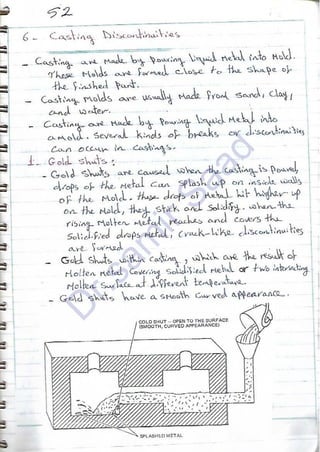 52
6- Casting Discontinuities
- Casting are Made by Pouring liquid Metal into Mold.
These Molds are formed close to the shape of
the finished Part.
- Casting Molds are usually Made from sand, clay,
and water.
- Casting are Made by Pouring liquid Metal into
a mold. Several kinds of breaks or discontinuities
can occur in castings.
1. Gold shuts:
- Gold shuts are caused when the casting is poured,
drops of the Metal can splash up on inside walls
of the Mold. these drops of Metal hit higher up
on the Mold, they stick and solidify. when the
rising Molten Metal reaches and covers the
solidified drops Metal, crack-like discontinuities
are formed
- Gold shuts within casting, which are the result of
Molten Metal covering solidified Metal or two intersecting
Molten surface at different temperature.
- Gold shuts have a smooth curved appearance.
COLD SHUT - OPEN TO THE SURFACE
(SMOOTH, CURVED APPEARANCE)
SPLASHED METAL